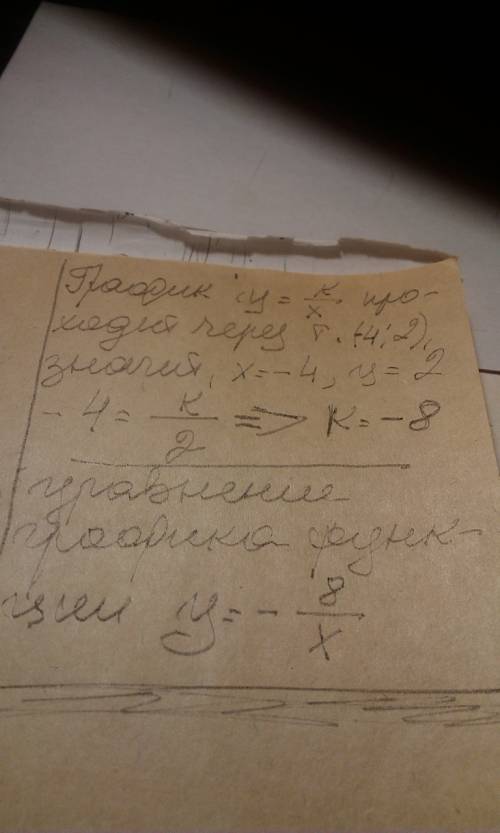 График y = к/x про-
ходит через т. (-4; 2),
значит, x = -4, y = 2
- 4 = к/2 => к = -8
уравнение
графика функ-
ции y = - 8/x